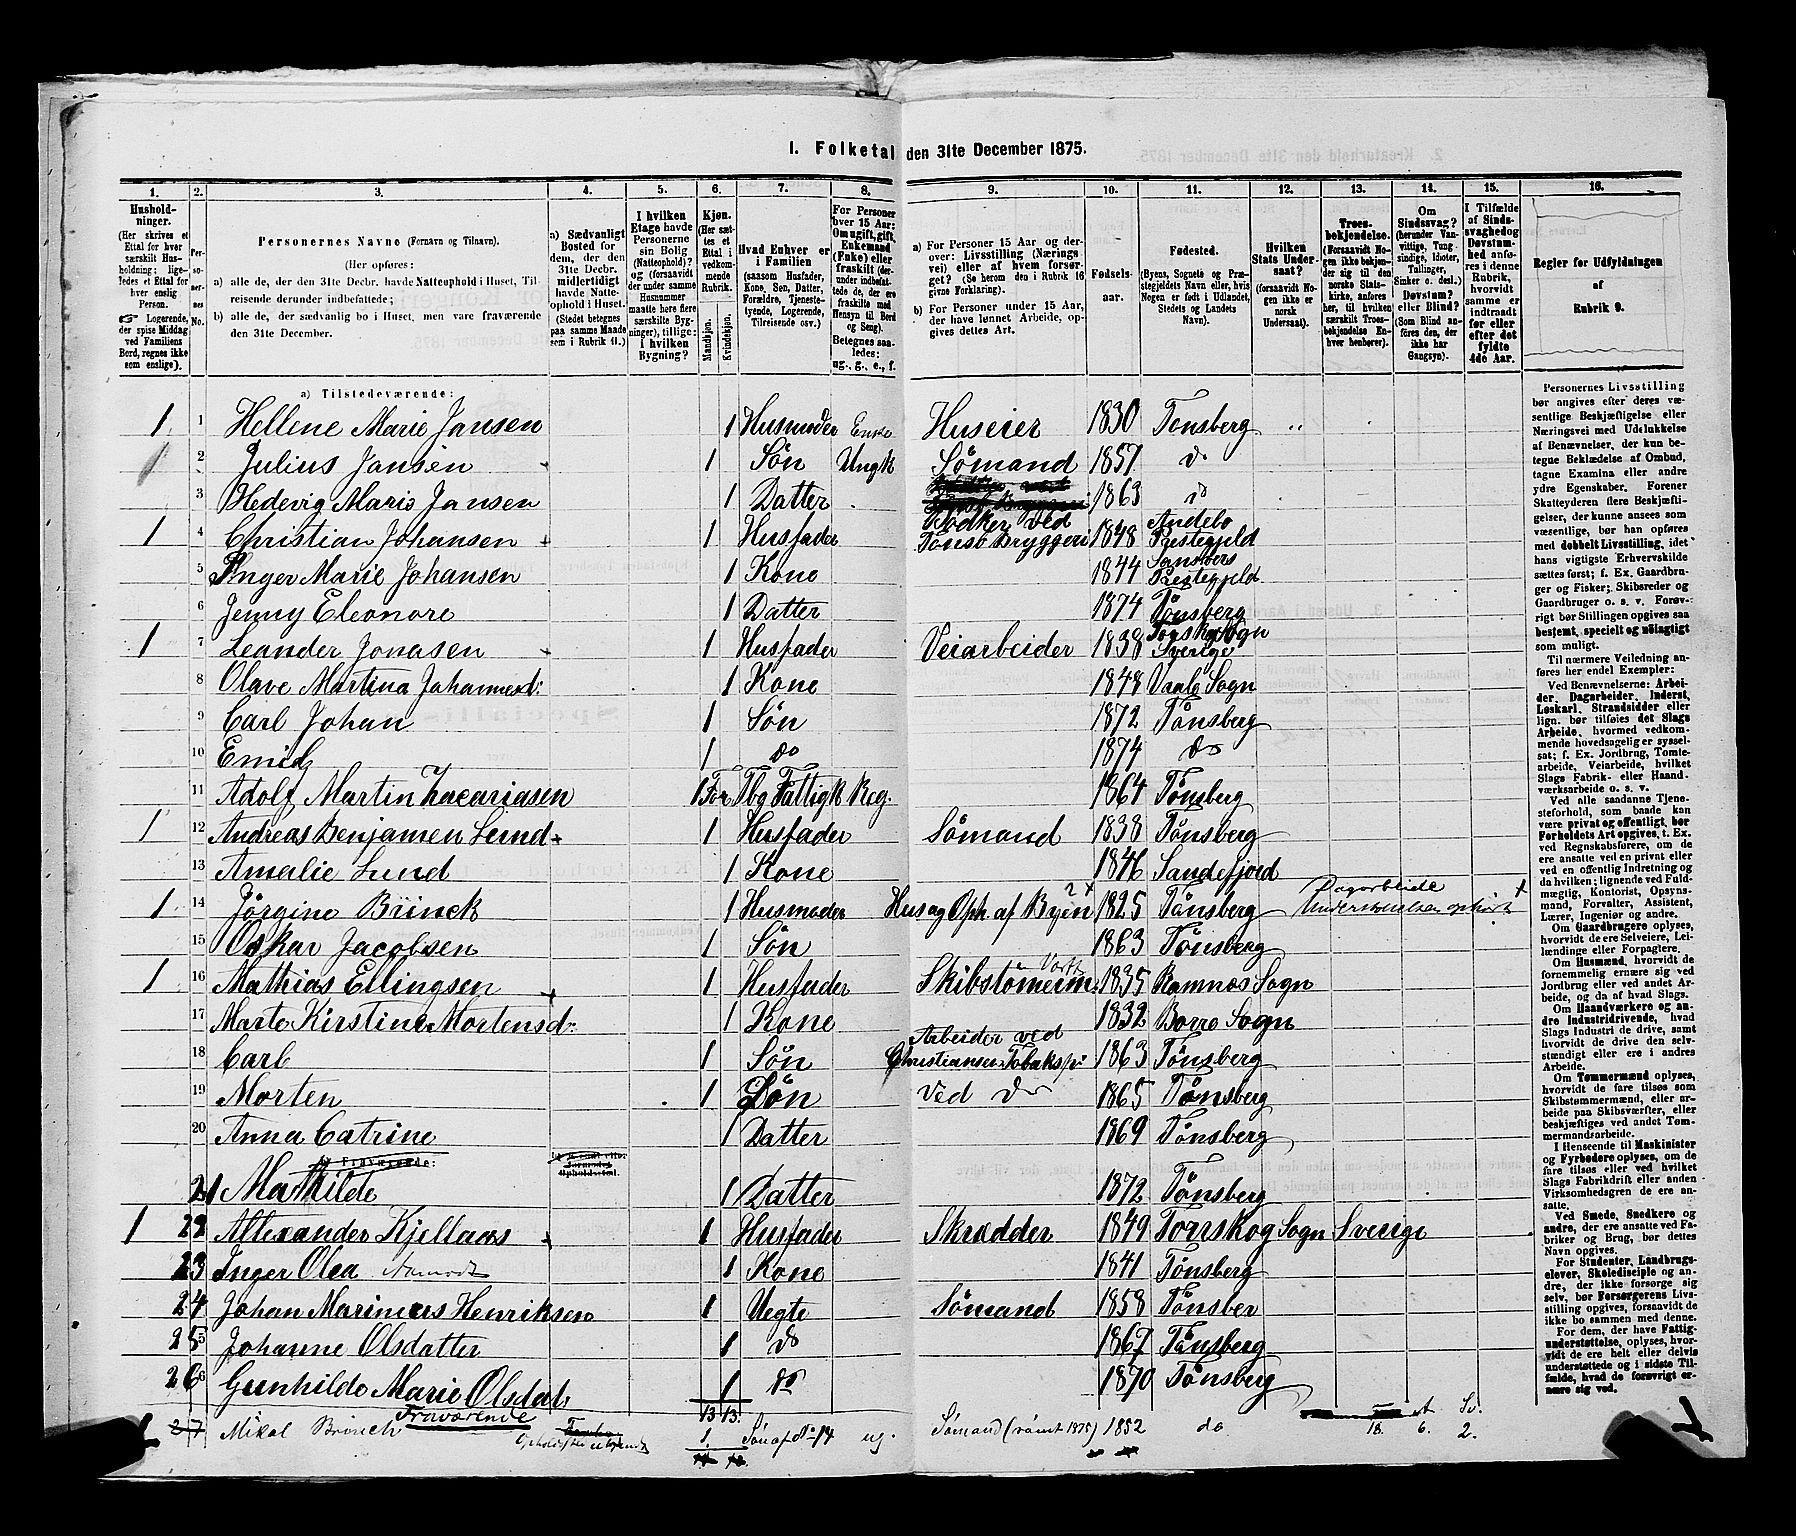 1. Folketal den 31te December 1875.
1. 2. 3. 4. 5. 6. 7. 8. 9. 10. 11. 12. 13. 14. 15. 16.
Hushold-
ninger.
(Her skrives et
Ettal for hver
særskilt Hus-
holdning; lige-
ledes et Ettal for
hver enslig
Person.
☞ Logerende,
der spise Middag
ved Familiens
Bord, regnes ikke
som enslige).
Per-
so-
ner-
nes
No.
Personernes Navne (Fornavn og Tilnavn).
(Her opføres:
a) alle de, der den 31te Decbr. havde Natteophold i Huset, Til-
reisende derunder indbefattede;
b) alle de, der sædvanlig bo i Huset, men vare fraværende
den 31te December.
a) Sædvanligt
Bosted for
dem, der den
31te Decbr.
midlertidigt
havde Natte-
ophold i Huset.
(Stedet betegnes
paa samme Maade
som i Rubrik 11.)
I hvilken
Etage havde
Personerne
sin Bolig
(Natteophold)?
og (forsaavidt
der under samme
Husnummer
maatte høre flere
særskilte Byg-
ninger), tillige:
i hvilken
Bygning?
Kjøn.
(Her sæt-
tes et
Ettal i
vedkom-
mende
Rubrik.
Mandkjøn.
Kvindekjøn.
Hvad Enhver er
i Familien
(saasom Husfader,
Kone, Søn, Datter,
Forældre, Tjeneste-
tyende, Logerende,
Tilreisende osv.)
For Personer
over 15 Aar:
Om ugift, gift,
Enkemand
(Enke) eller
fraskilt (der-
under indbefat-
tede de, der ere
fraskilte med
Hensyn til Bord
og Seng).
Betegnes saa-
ledes:
ug., g., e., f.
a) For Personer 15 Aar og der-
over: Livsstilling (Nærings-
vei) eller af hvem forsør-
get? (Se herom den i Rubrik 16
givne Forklaring).
b) For Personer under 15 Aar,
der have lønnet Arbeide, op-
gives dettes Art.
Fødsels-
aar.
Fødested.
(Byens, Sognets og Præ-
stegjeldets Navn eller, hvis
Nogen er født i Udlandet,
Stedets og Landets
Navn).
Hvilken
Stats Under-
saat?
(forsaavidt No-
gen ikke er
norsk
Undersaat).
Troes-
bekjendelse.
(Forsaavidt No-
gen ikke bekjen-
der sig til den
norske Stats-
kirke, anføres
her, til hvilken
særskilt Troes-
bekjendelse En-
hver henhører).
Om
Sindssvag?
(herunder Van-
vittige, Tung-
sindige, Idioter,
Tullinger,
Sinker o. desl.)
Døvstum?
eller Blind?
(Som Blind an-
føres den, der
ikke har
Gangsyn).
I Tilfælde
af Sinds-
svaghed og
Døvstum-
hed anfø-
res i denne
Rubrik,
hvorvidt
samme er
indtraadt
før eller
efter det
fyldte
4de Aar.
Regler for Udfyldningen
af
Rubrik 9.
a) Tilstedeværende:
1 1 Hellene Marie Jansen 1 Husmoder Enke Huseier 1830 Tønsberg
2 Julius Jansen 1 Søn Ungk Sømand 1857 do
3 Hedevig Maris Jansen 1 Datter 1863 do
1 4 Christian Johansen 1 Husfader Bødker ved Tønsb Bryggeri 1848 Andebo Prestegjeld
5 Inger Marie Johansen 1 Kone 1844 Prestegjeld
6 Jenny Eleonore 1 Datter 1874 Tønsberg
1 7 Leander Jonasen 1 Husfader Veiarbeider 1838 Torskog Sogn Sverige
8 Olave Martina Johannesd: 1 Kone 1848 Vaale Sogn
9 Carl Johan 1 Søn 1872 Tønsberg
10 Emil 1 do 1874 do
11 Adolf Martin Zacariasen 1 For Tbg Fattigk Reg. 1864 Tønsberg
1 12 Andreas Benjamen Lund 1 Husfader Sømand 1838 Tønsberg
13 Amalie Lund 1 Kone 1846 Sandefjord
1 14 Jørgine Brinck 1 Husmoder Hus og Oph. af Byen 1825 Tønsberg Dagarbeide
15 Oskar Jacobsen 1 Søn 1863 Tønsberg
1 16 Mathias Ellingsen 1 Husfader Skibstømerm. 1835 Ramnæs Sogn
17 Marte Kirstine Mortensd: 1 Kone 1832 Borre Sogn
18 Carl 1 Søn Arbeider ved Christiansens Tobaksfi 1863 Tønsberg
19 Morten 1 Søn ved do 1865 Tønsberg
20 Anna Catrine 1 Datter 1869 Tønsberg
b) Fraværende:
21 Mathilde 1 Datter 1872 Tønsberg
1 22 Allexander Kjellaas 1 Husfader Skrædder 1849 Torrskog Sogn Sverige
23 Inger Olea Aamodt 1 Kone 1841 Tønsberg
24 Johan Marineus Henriksen 1 Uegte Sømand 1858 Tønsber
25 Johanne Olsdatter 1 do 1867 Tønsberg
26 Gunhilde Marie Olsdat 1 do 1870 Tønsberg
13 13
Fraværende
27 Mikal Brinch 1. Søn af No 14 ug. Sømand (rømt 1875) 1852 do 18. 6. 2.
Personernes Livsstilling
bør angives efter deres væ-
sentlige Beskjæftigelse eller
Næringsvei med Udelukkelse
af Benævnelser, der kun be-
tegne Beklædelse af Ombud,
tagne Examina eller andre
ydre Egenskaber. Forener
Skatteyderen flere Beskjæfti-
gelser, der kunne ansees som
væsentlige, bør han opføres
med dobbelt Livsstilling, idet
hans vigtigste Erhvervskilde
sættes først; f. Ex. Gaardbru-
ger og Fisker; Skibsreder og
Gaardbruger o. s. v. Forøv-
rigt bør Stillingen opgives saa
bestemt, specielt og nøiagtigt
som muligt.
Til nærmere Veiledning an-
føres her endel Exempler:
Ved Benævnelserne: Arbei-
der, Dagarbeider, Inderst,
Løskarl, Strandsidder eller
lign. bør tilføies det Slags
Arbeide, hvormed vedkom-
mende hovedsagelig er syssel-
sat; f. Ex. Jordbrug, Tomte-
arbeide, Veiarbeide, hvilket
Slags Fabrik- eller Haand-
værksarbeide o. s. v.
Ved alle saadanne Tjene-
steforhold, som baade kan
være privat og offentligt, bør
Forholdets Art opgives, t. Ex.
ved Regnskabsførere, om de
ere ansatte ved en privat eller
ved en offentlig Indretning og
da hvilken; lignende ved Fuld-
mægtig, Kontorist, Opsyns-
mand, Forvalter, Assistent,
Lærer, Ingeniør og andre.
Om Gaardbrugere oplyses,
hvorvidt de ere Selveiere, Lei-
lændinge eller Forpagtere.
Om Husmænd, hvorvidt de
fornemmelig ernære sig ved
Jordbrug eller ved andet Ar-
beide, og da af hvad Slags.
Om Haandværkere og an-
dre Industridrivende, hvad
Slags Industri de drive, samt
hvorvidt de drive den selv-
stændigt eller ere i andres
Arbeide.
Om Tømmermænd oplyses,
hvorvidt de fare tilsøs som
Skibstømmermænd, eller ar-
beide paa Skibsværfter, eller
beskjæftiges ved andet Tøm-
mermandsarbeide.
I Henseende til Maskinister
og Fyrbødere oplyses, om de
fare tilsøs eller ved hvilket
Slags Fabrikdrift eller anden
Virksomhedsgren de ere an-
satte.
Ved Smede, Snedkere og
andre, der ere ansatte ved Fa-
briker og Brug, bør dettes
Navn opgives.
For Studenter, Landbrugs-
elever, Skoledisciple og an-
dre, der ikke forsørge sig
selv, bør Forsørgerens Livs-
stilling opgives, forsaavidt de
ikke bo sammen med denne.
For dem, der have Fattig-
understøttelse, oplyses, hvor-
vidt de ere helt eller delvis
understøttede og i sidste Til-
fælde, hvad de forøvrigt er-
nære sig ved.